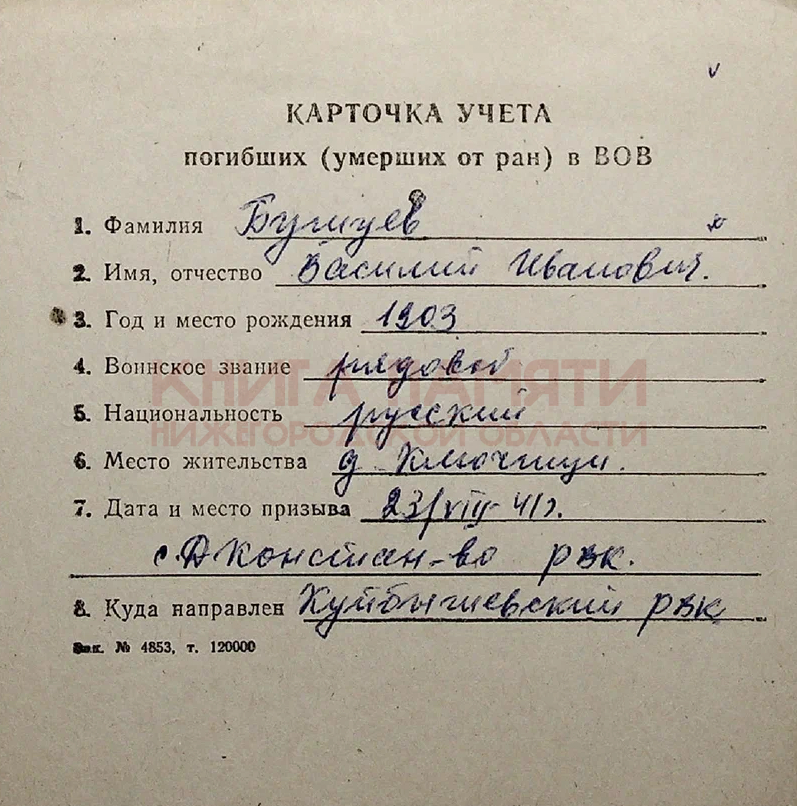 КАРТОЧКА УЧЕТА
погибших (умерших от ран) в ВОВ
1. Фамилия
2. Имя, отчество Василий Иванович.
3. Год и место рождения 1903
4. Воинское звание рядовой
5. Национальность русский
КНИГА ПАМЯТИ
НИЖЕГОРОДСКОЙ ОБЛАСТИ
6. Место жительства д. Ключищи.
7. Дата и место призыва 23/VIII-41г.
с. Д Констан-во рвк.
8. Куда направлен Куйбышевский рвк
Зак. № 4853, т. 120000